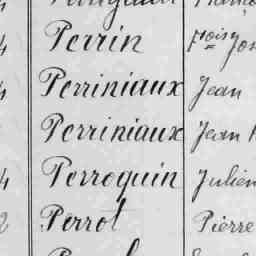 4 Perrin Jos
4 Perriniaux Jean
Perriniaux Jean
4 Perroquin Julien
2 Perrot Pierre